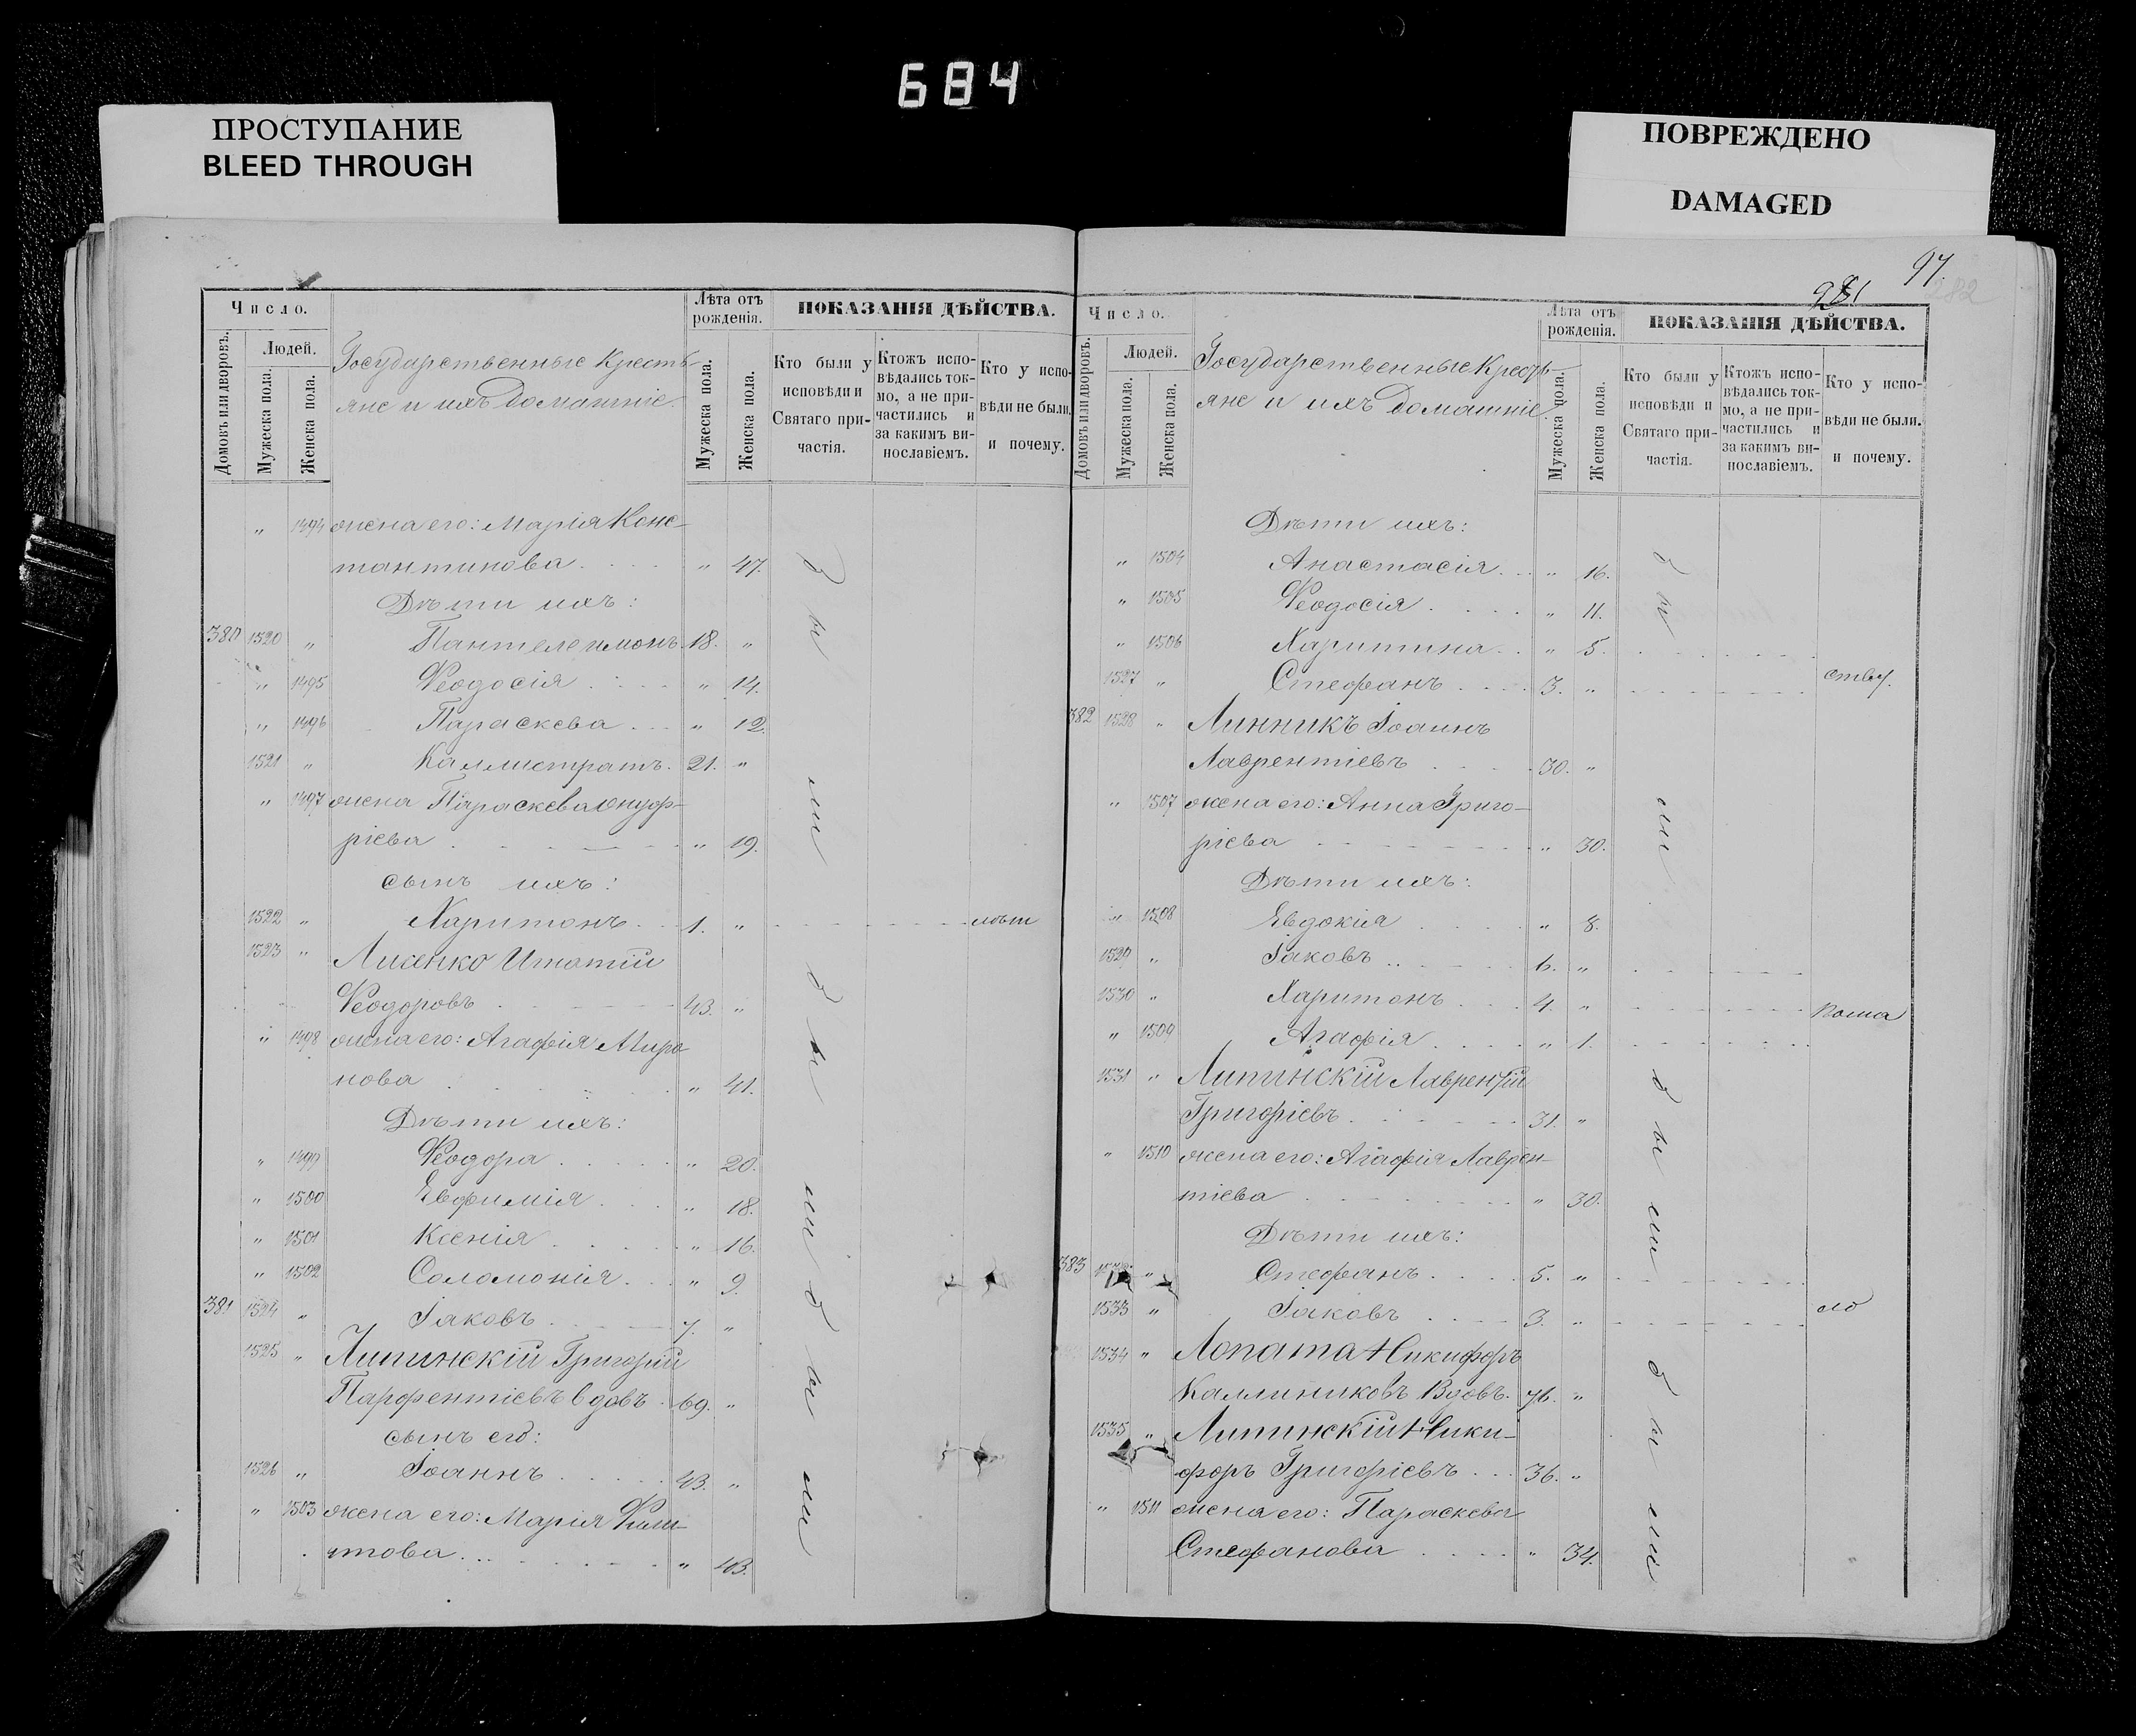 684
ПРОСТУПАНИЕ
BLEED THROUGH
ПОВРЕЖДЕНО
DAMAGED
Число.
Домовъ или дворовъ.
Людей.
Мужеска пола.
Женска пола.
Государственные Кресть-
яне и ихъ домашніе.
Лѣта отъ рожденія.
Мужеска пола.
Женска пола.
ПОКАЗАНІЯ ДѢЙСТВА.
Кто были у исповѣди и Святаго при-частія.
Ктожъ испо-вѣдались ток-мо, а не при-частились и за какимъ ви-нословіемъ.
Кто у испо-вѣди не были. и почему.
" 1494 жена его: Марія Конс-
тантинова " 47.
Дѣти ихъ:
380 1520 " Пантелеимонъ 18. "
" 1495 Ѳеодосія " 14.
" 1496 Параскева " 12.
1521 " Каллистратъ 21. "
" 1497 жена Параскева Онуф-
ріева " 19.
сынъ ихъ:
1522 " Харитонъ 1. "
1523 " Лисенко Ипатій
Ѳеодоровъ 43. "
" 1498 жена его: Агафія Миро
нова " 41.
Дѣти ихъ:
" 1499 Ѳеодора " 20.
" 1500 Евфимія " 18.
" 1501 Ксенія " 16.
" 1502 Соломонія " 9.
381 1524 " Іаковъ 7. "
1525 " Липинскій Григорій
Парфентіевъ вдовъ 69. "
сынъ его:
1526 " Іоаннъ 43. "
" 1503 жена его: Марія Фили-
ппова " 43.
были
были
были
97.
281
282
Число.
Домовъ или дворовъ.
Людей.
Мужеска пола.
Женска пола.
Государственные Кресть-
яне и ихъ домашніе
Лѣта отъ рожденія.
Мужеска пола.
Женска пола.
ПОКАЗАНІЯ ДѢЙСТВА.
Кто были у исповѣди и Святаго при-частія.
Ктожъ испо-вѣдались ток-мо, а не при-частились и за какимъ ви-нословіемъ.
Кто у испо-вѣди не были. и почему.
Дѣти ихъ:
" 1504 Анастасія " 16.
" 1505 Ѳеодосія " 11.
" 1506 Харитина " 5.
1527 " Стефанъ 3. "
382 1528 " Линникъ Іоаннъ
Лаврентіевъ 30. "
" 1507 жена его: Анна Григо-
ріева " 30.
Дѣти ихъ:
" 1508 Евдокія " 8.
1529 " Іаковъ 6. "
1530 " Харитонъ 4. "
" 1509 Агафія " 1.
1531 " Липинскій Лаврентій
Григоріевъ 31. "
" 1510 жена его: Агафія Лаврен-
тіева " 30.
Дѣти ихъ:
383 " Стефанъ 5. "
1533 " Іаковъ 3. "
1534 " Лопата Никифоръ
Каллиниковъ Вдовъ. 76. "
1535 " Липинскій Ники-
форъ Григоріевъ 36. "
" 1511 жена его: Параскева
Стефанова " 34.
были
были
были